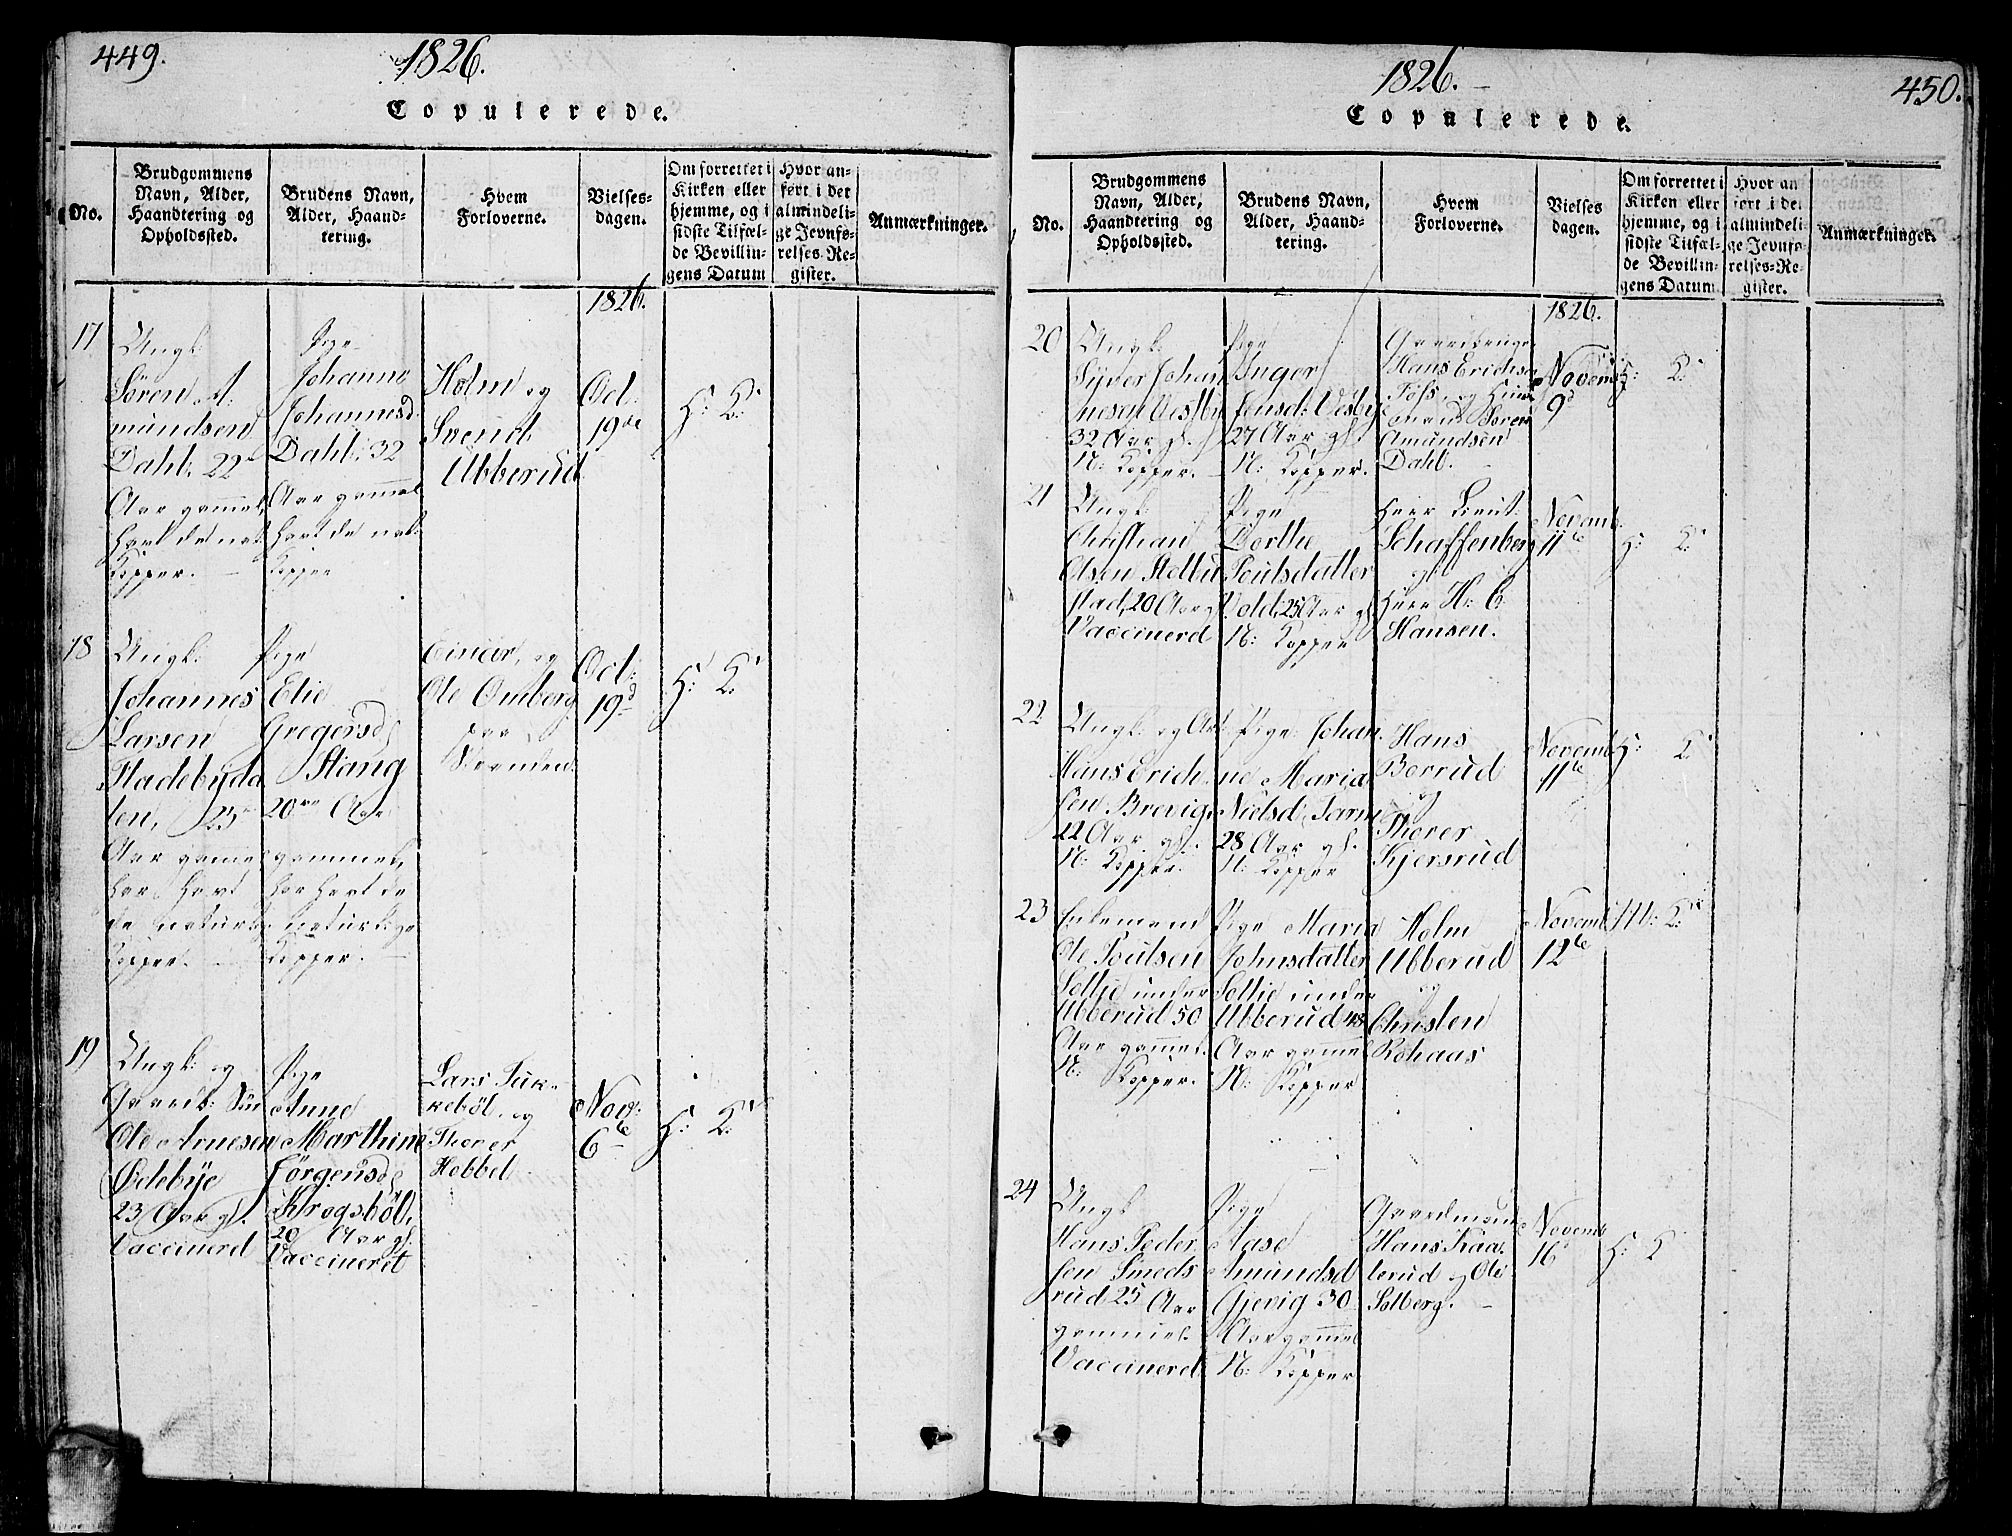 449.
1826.
Copulerede.
No.
Brudgommens
Navn, Alder,
Haandtering og
Opholdssted.
Brudens Navn,
Alder, Haand-
tering.
Hvem
Forloverne.
Vielses-
dagen.
Om forrettet i
Kirken eller
hjemme, og i
sidste Tilfæl-
de Bevillin-
gens Datum
Hvor an-
ført i det
almindeli-
ge Jevnfø-
relses-Re-
gister.
Anmærkninger.
1826.
17
Ungk:
Sören A-
mundsen
Dahl. 22
Aar gammel,
havt de nat
Kopper.
Pige
Johanne
Johannesd:
Dahl: 32
Aar gammel
havt de nat:
Kopper
Holm og
Svend
Ubberud
Oct:
19de
H: K:
18
Ungk:
Johannes
Larsen
Stadebyda
len, 25
Aar gamel
har havt
de naturl:
Kopper.
Pige
Elie
Gregersd
Stang
20 Aar
gammel,
har havt de
naturlige
Kopper.
Einar, og
Ole Omberg
paa
Oct:
19d
H: K:
19
Ungk: og
Gaardb: Sön
Ole Arnesen
Ödebye
23 Aar gl.
Vaccinerd
Pige
Anne
Marthine
Jörgensd
Krogsböl,
20 Aar gl:
Vaccineret
Lars Tuk-
keböl, og
Thorer
Hobbel
Nov:
6te
H: K:
1826.
450.
Copulerede.
No.
Brudgommens
Navn, Alder,
Haandtering og
Opholdssted.
Brudens Navn,
Alder, Haand-
tering.
Hvem
Forloverne.
Vielses
dagen.
Om forrettet i
Kirken eller
hjemme, og i
sidste Tilfæl-
de Bevillin-
gens Datum
Hvor an
ført i det
almindeli-
ge Jevnfø-
relses-Re-
gister.
Anmærkninger.
1826.
20
Ungk.
Syver Johan
nesen Vestby
32 Aar gl.
N: Kopper.
Pige
Inger
Jensd: Vesbye
27 Aar gl.
N: Kopper.
Hans Erichsen
Foss, og
Sören
Amundsen
Dahl.
Novemb:
9d
H: K:
21
Ungk:
Christian
Olsen Stelbu
stad, 20 Aar gl
Vaccinerd
Pige
Dorthe
Poulsdatter
Vold, 25 Aar gl
N: Kopper
Herr Lieut:
Schaffenberg
og
Herr H: C:
Hansen.
Novemb.
11te
H: K:
22
Ungk: og
Hans Erich
sen Brevig.
22 Aar gl.
N: Kopper.
Pige: Johan
ne Maria
Nielsd
28 Aar gl.
N: Kopper
Hans
Borrud
og
Thorer
Kjersrud
Novemb
11te
H: K:
23
Enkemand
Ole Poulsen
Sollie under
Ubberud 50
Aar gamel.
N: Kopper.
Pige Maria
Johnsdatter
Sollie under
Ubberud 48
Aar gamel
N: Kopper
Holm
Ubberud
og
Christen
Rohaus
Novemb
12te
H: K:
24
Ungk
Hans Peder
sen Smeds
rud 25 Aar
gammel.
Vaccinerd
Pige
Aase
Amundsd
Gjevig 30
Aar gamel
N: Kopper
Gaardmand
Hans Kaa
terud og Ole
Solberg.
Novemb
16
H: K